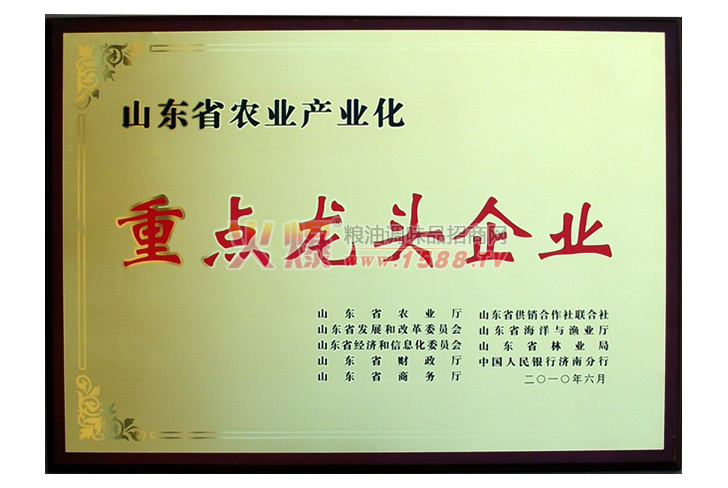 山东省农业产业化
重点龙头企业
火爆®粮油调味品招商网
www.1588.TV
山东省农业厅 山东省供销合作社联合社
山东省发展和改革委员会 山东省海洋与渔业厅
山东省经济和信息化委员会 山东省林业局
山东省财政厅 中国人民银行济南分行
山东省商务厅 二〇一〇年六月